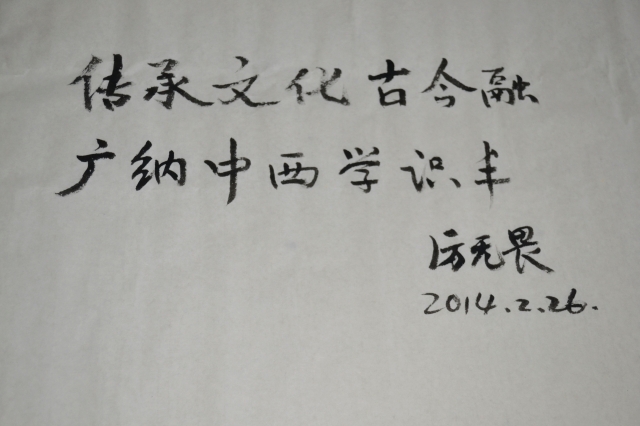 传承文化古今融
广纳中西学识丰
厉无畏
2014.2.26.